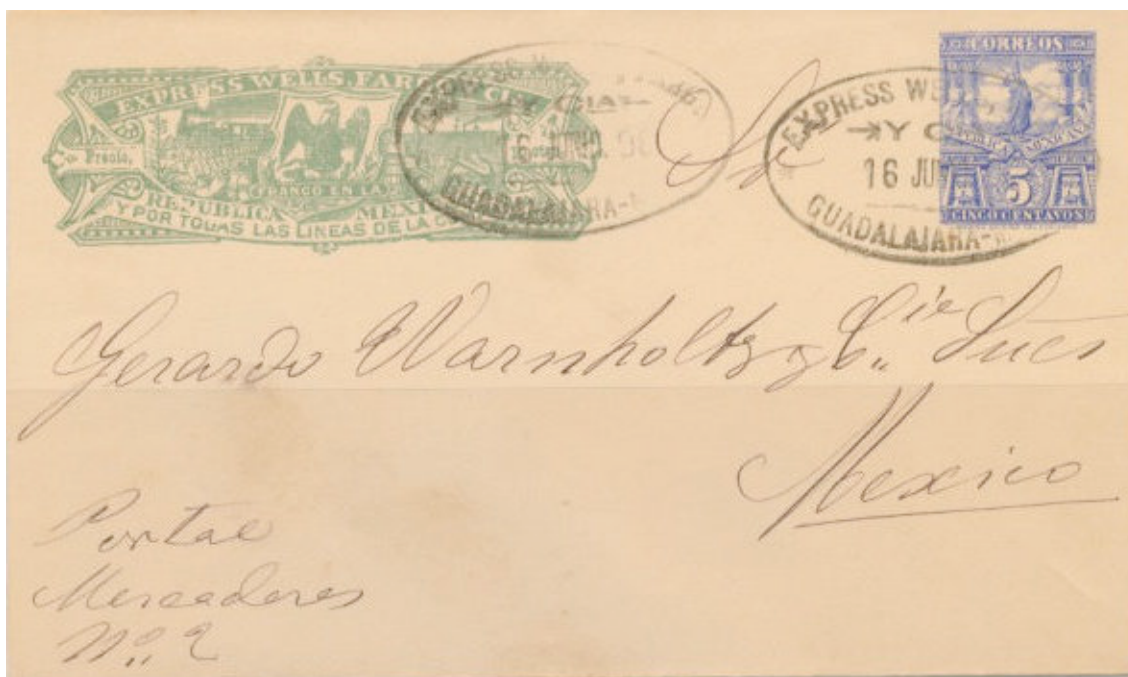 EXPRESS WELLS, FARGO Y CIA.
Precio,
FRANCO EN LA
REPUBLICA MEXICANA
Y POR TODAS LAS LINEAS DE LA
EXPRESS
Y CIA
16 JUNIO
GUADALAJARA
EXPRESS WE
Y C
16 JU
GUADALAJARA
CORREOS
MEXICANA
5
CINCO CENTAVOS
Sr
Gerardo Warnholtz y Cie Sucs
Mexico
Portal
Mercaderes
No. 2